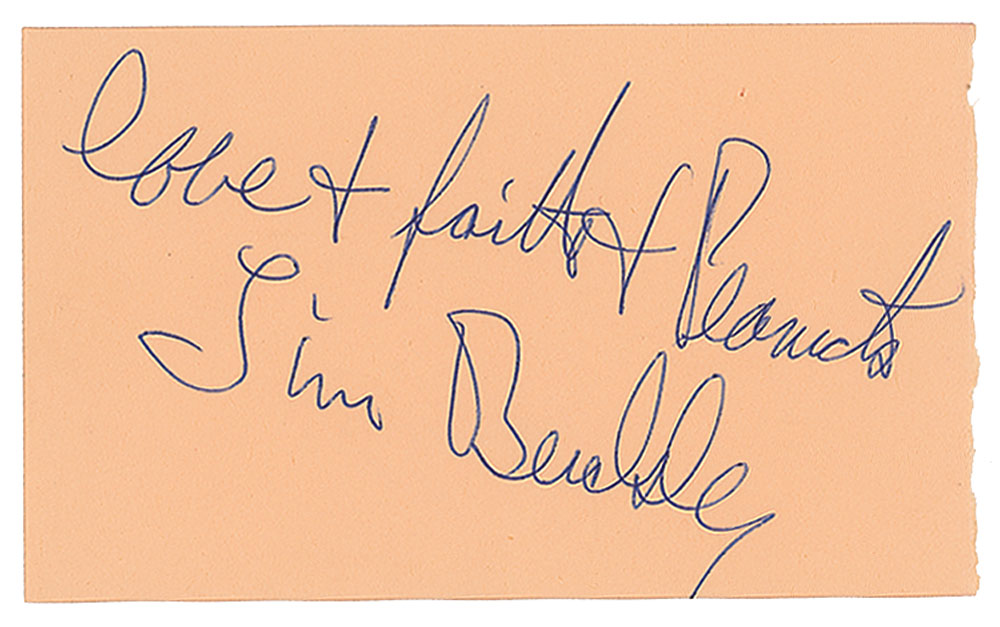 love + faith + Peanuts
Tim Buckley